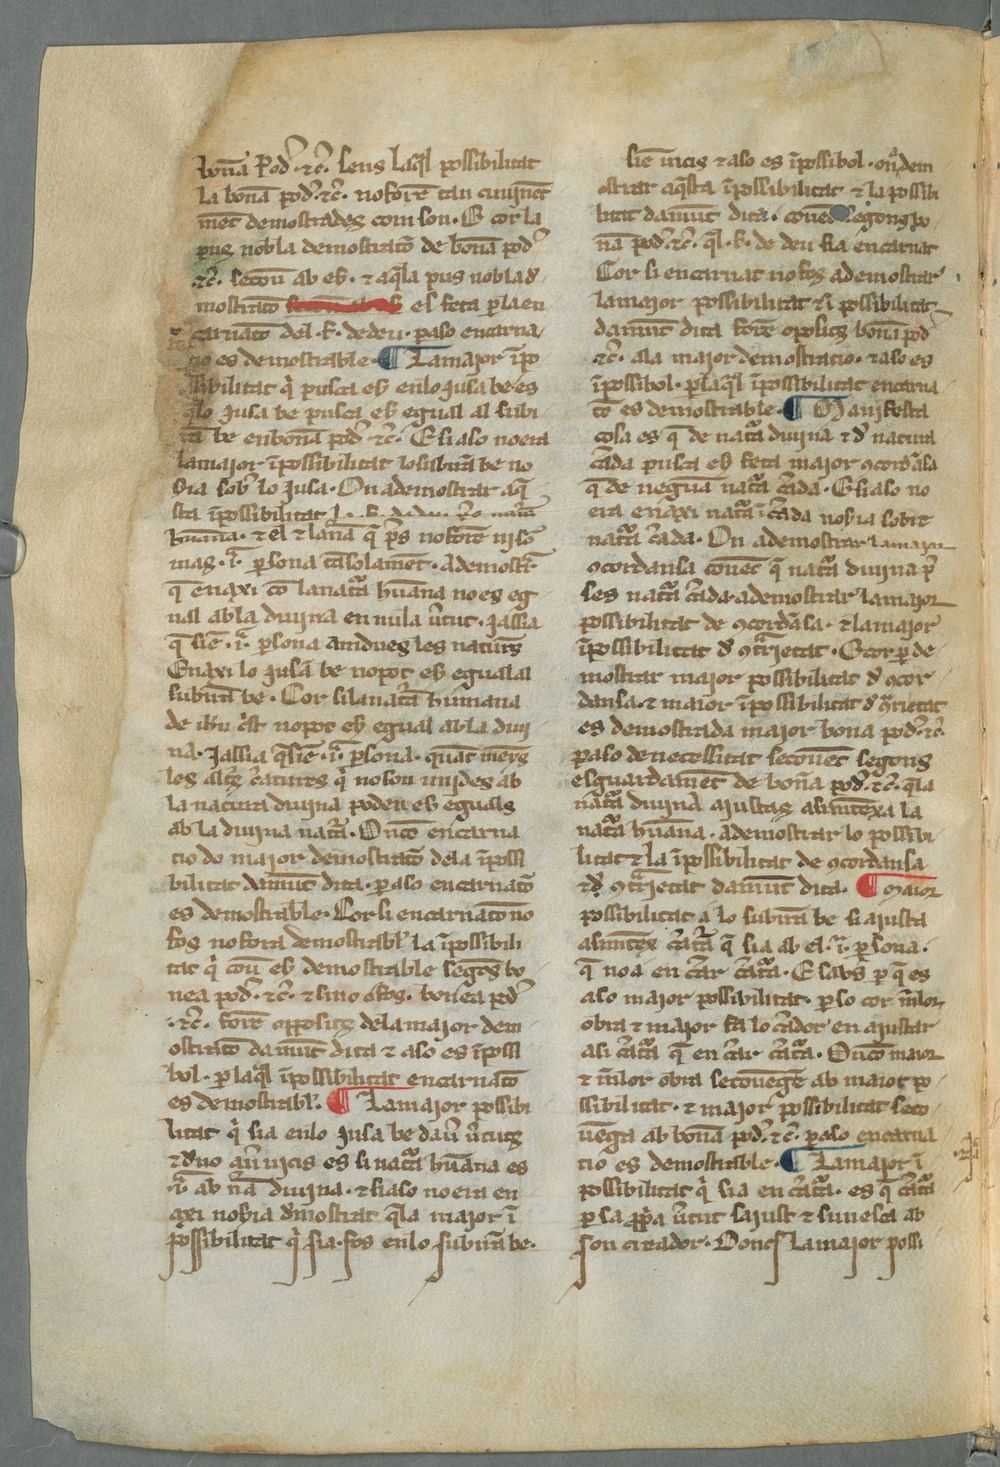 bonā pod᷑ ·⁊c̃· sens laq̄l possibilitat
la bonā pod᷑ ·⁊c̃· no forē tan cuinēt
mēt demostrades com son · E cor la
pus nobla demostrato de bonā pod᷑
⁊c̃· secoū ab es · ⁊ aq̄la pus nobla d᷑
mostrato es feta ꝑ la en
carnato del ·f· de deu · ꝑ aso encarna
cio es demostrable · ¶ La major īpo
ssibilitat q̇ pusca es en lo jusa be es
q̄ lo jusa be pusca es egual al subi
rā be en bonā pod᷑ ·⁊c̃· E si aso no era
la major īpossibilitat lo subirā be no
sia sob᷑ lo jusa · On a demostrar aq̄
sta īpossibilitat
humana · ⁊ el ⁊ la nā q̄ p̄s no forē ni so
mas ·i̇· ꝑsona tā solamēt · a demostr̄
q̄ enaxi co la natᷓa humana no es eg
ual ab la diuina en nula v̄tut · jassia
q̄ siē ·i̇· ꝑsona amdues les natures
Enaxi lo jusā be no pot es egual al
subirā be · Cor si la natᷓa humana
de ihu c̄st no pot es egual ab la diui
na · jassia q̄ siē ·i̇· ꝑsona · quāt meys
les altᷤ c̄atures q̇ no son unides ab
la natura diuina poden es eguals
ab la diuina natᷓa · Oncō encarna
cio do major demostrato de la īpossi
bilitat damūt dita · ꝑ aso encarnato
es demostrable · Cor si encarnato no
fos no fora demostrabl᷑ la īpossibili
tat q̇ coū es demostrable segons bo
nea pod᷑ ·⁊c̃· ⁊ si no o fos · bonea pod᷑
·⁊c̃· forē opposits de la major dem
ostrato damūt dita ⁊ aso es īpossi
bol · ꝑ laq̄l īpossibilitat encarnato
es demostrabl᷑ · ¶ La major possibi
litat q̇ sia en lo jusa be dav̄ v̄tuts
⁊ d᷑ no av̄ vicis es si natᷓa humana es
·i̇· ab nᷓa diuina · ⁊ si aso no era en
axi no sia d᷑mostrat q̄ la major ī
possibilitat q̇ sia · fos en lo subirā be ·
siē vicis ⁊ aso es īpossibol · on a dem
ostrar aq̄sta īpossibilitat ⁊ la possibi
litat damūt dita · segons bo
nā pod᷑ ·⁊c̃· q̄l ·f· de deu sia encarnat
Cor si encarnat no fos a demostrar
la major possibilitat ⁊ īpossibilitat
damūt dita forē oposits bonā pod᷑
·⁊c̃· a la major demostracio · ⁊ aso es
īpossibol · ꝑ laq̄l īpossibilitat encarna
to es demostrable · ¶ Manifesta
cosa es q̄ de natᷓa diuina ⁊ d᷑ natura
c̄ada pusca es feta major ꝯcordāsa
q̄ de neguna natᷓa c̄ada · E si aso no
era enaxi natᷓa īc̄ada no sia sobre
natᷓa c̄ada · On a demostrar la major
ꝯcordansa couēt q̄ natᷓa diuina p̄
ses natᷓa c̄ada · a demostrar la major
possibilitat de ꝯcordāsa · ⁊ la major
īpossibilitat d᷑ ꝯtᷓrietat · E cor ꝑ de
mostrar major possibilitat d᷑ ꝯcor
dansa · ⁊ major īpossibilitat d᷑ ꝯᷓrietat
es demostrada major bona pod᷑ ·⁊c̃·
ꝑ aso de necessitat se couēt segons
esguardamēt de bonā pod᷑ ·⁊c̃· q̄ la
natᷓa diuina ajustas a si mtēxa la
natᷓa humana · a demostrar lo possibi
litat ⁊ la īpossibilitat de ꝯcordansa
⁊ d᷑ ꝯtᷓrietat damūt dita · ¶ Maior
possibilitat a lo subirā be si ajusta
a si mtēx c̄atᷓa q̄ sia ab el ·i̇· ꝑsona ·
q̄ no a en c̄ar c̄atᷓa · E sabs ꝑ q̄ es
aso major possibilitat · ꝑ so cor mīlor
obra ⁊ major fa lo c̄ador en ajustar
a si c̄atᷓa q̄ en c̄ar c̄atᷓa · Oncō maior
⁊ mīlor obra se couēge ab maior po
ssibilitat · ⁊ major possibilitat se co
uēga ab bonā pod᷑ ·⁊c̃· ꝑ aso encarna
cio es demostrable · ¶ La major ī
possibilitat q̇ sia en c̄atᷓa · es q̄ c̄atᷓa
ꝑ sa ꝓp̄a v̄tut sajust ⁊ sunesca ab
son creador · Doncs la major possi